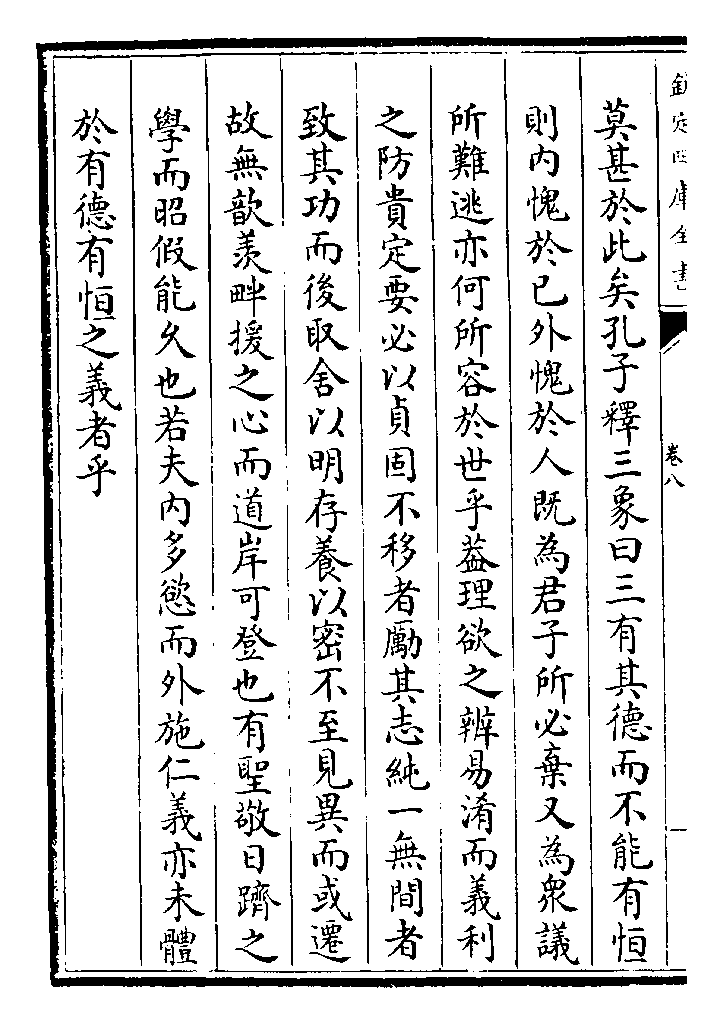 欽定四庫全書
卷八
莫甚於此矣孔子釋三象曰三有其德而不能有恒
則内愧於已外愧於人既為君子所必棄又為衆議
所難逃亦何所容於世乎葢理欲之辨易淆而義利
之防貴定要必以貞固不移者勵其志純一無間者
致其功而後取舍以明存養以密不至見異而或遷
故無歆羨畔援之心而道岸可登也有聖敬日躋之
學而昭假能乆也若夫内多慾而外施仁義亦未體
於有德有恒之義者乎